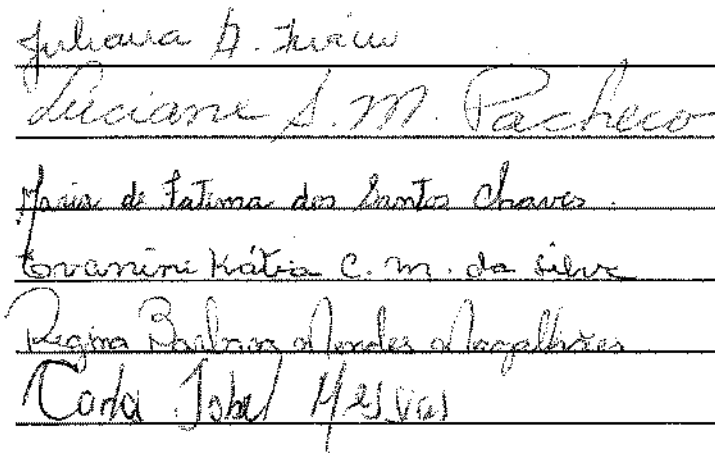 Juliana A.
Luciane S. M. Pacheco
Maria de Fatima dos Santos Chaves.
Kátia C. M. da Silva
Regina Barbosa Mendes Magalhães
Carla